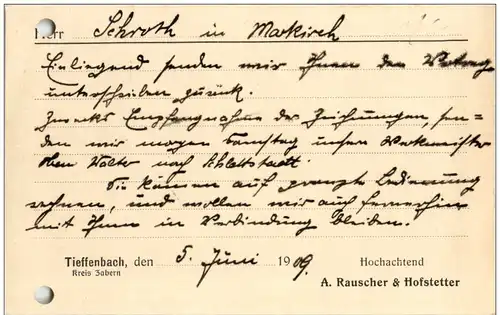 Herr Schroth in Markirch
Einliegend senden wir Ihnen den Vertrag
unterschrieben zurück.
Zwecks Empfangnahme der Zeichnungen, sen=
den wir morgen Samstag unsern Werkmeister
nach Schlettstadt
Sie können auf prompte Bedienung
rechnen, und wollen wir auf fernerhin
mit Ihnen in Verbindung bleiben.
Tieffenbach, den 5. Juni 1909.
Kreis Zabern
Hochachtend
A. Rauscher & Hofstetter